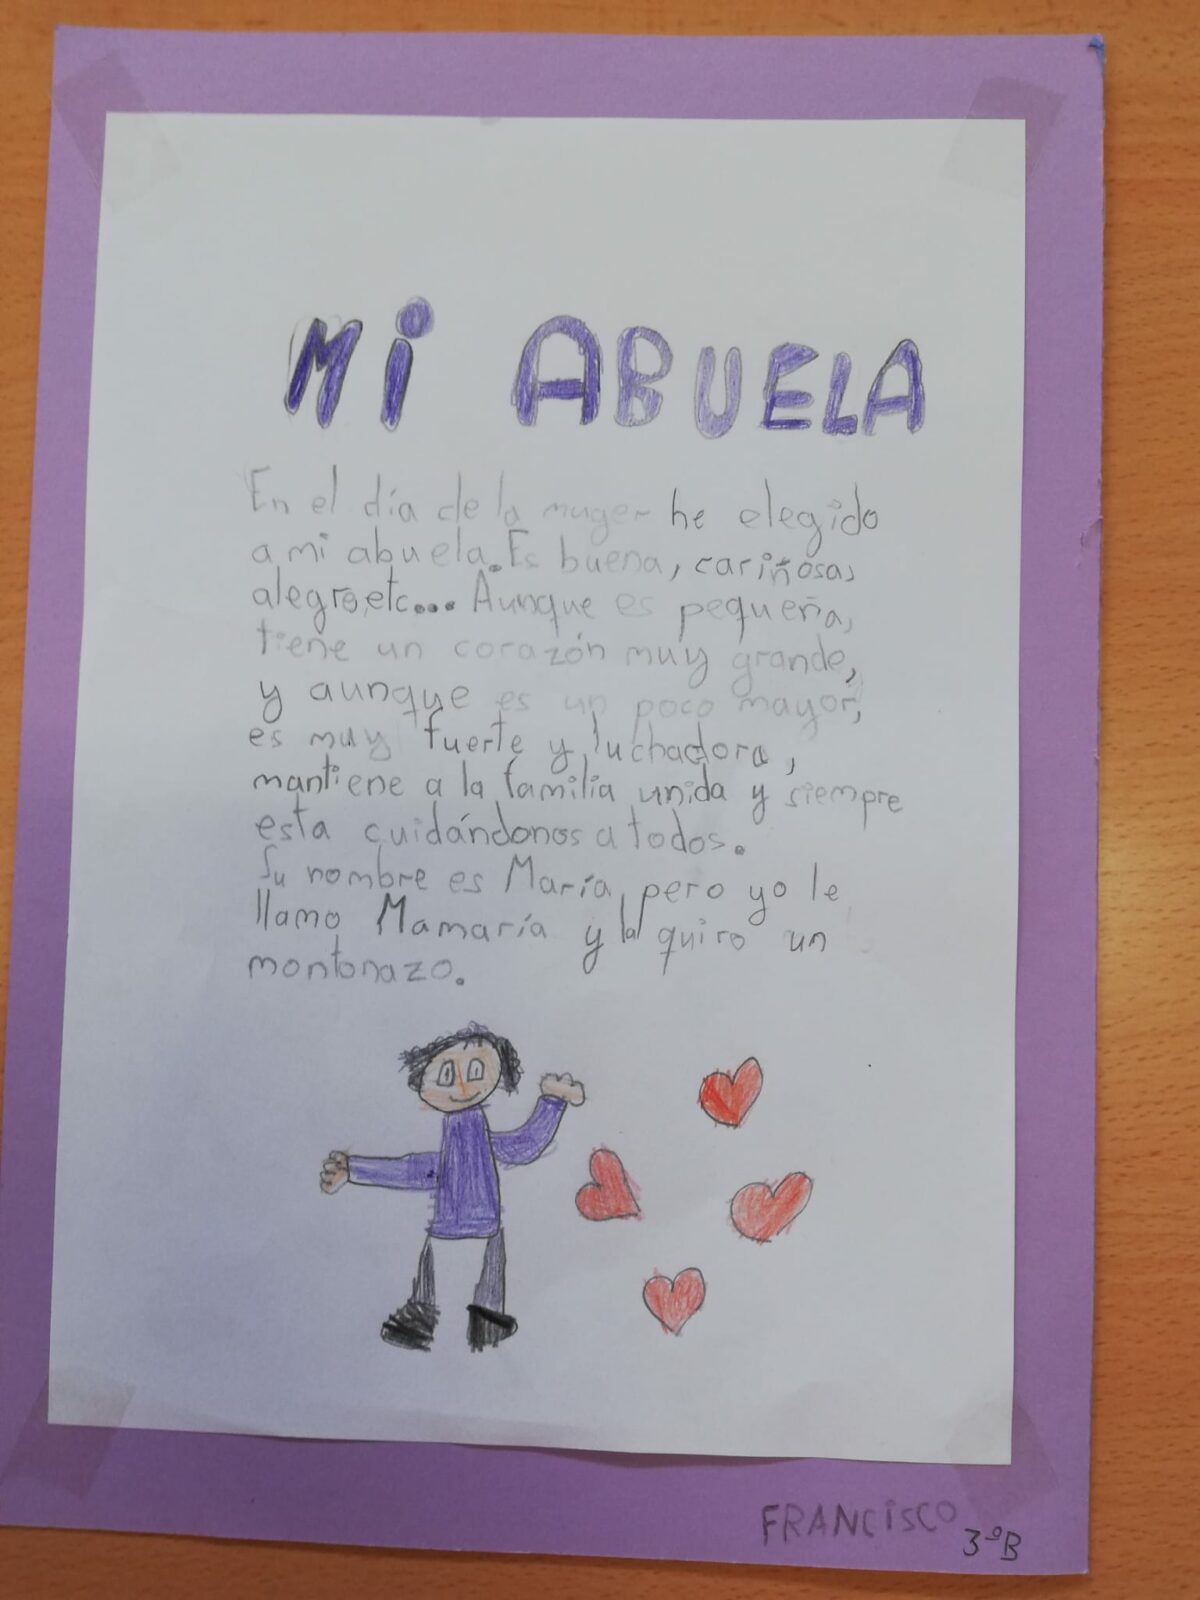 MI ABUELA
En el día de la muger he elegido
a mi abuela. Es buena, cariñosa,
alegre, etc... Aunque es pequeña,
tiene un corazón muy grande,
y aunque es un poco mayor,
es muy fuerte y luchadora,
mantiene a la familia unida y siempre
esta cuidándonos a todos.
Su nombre es María, pero yo le
llamo Mamaría y la quiro un
montonazo.
FRANCISCO
3ºB